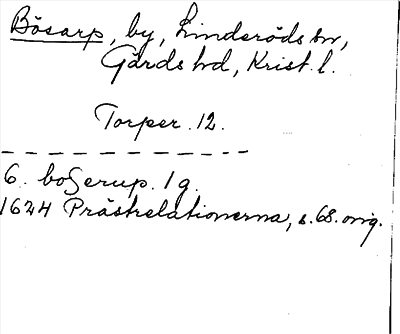 Bösarp, by, Linderöds sn,
Gärds hd, Krist. l.
Torper. 12.
6. boSerup. 1 g.
1624 Prästrelationerna, s. 68. orig.